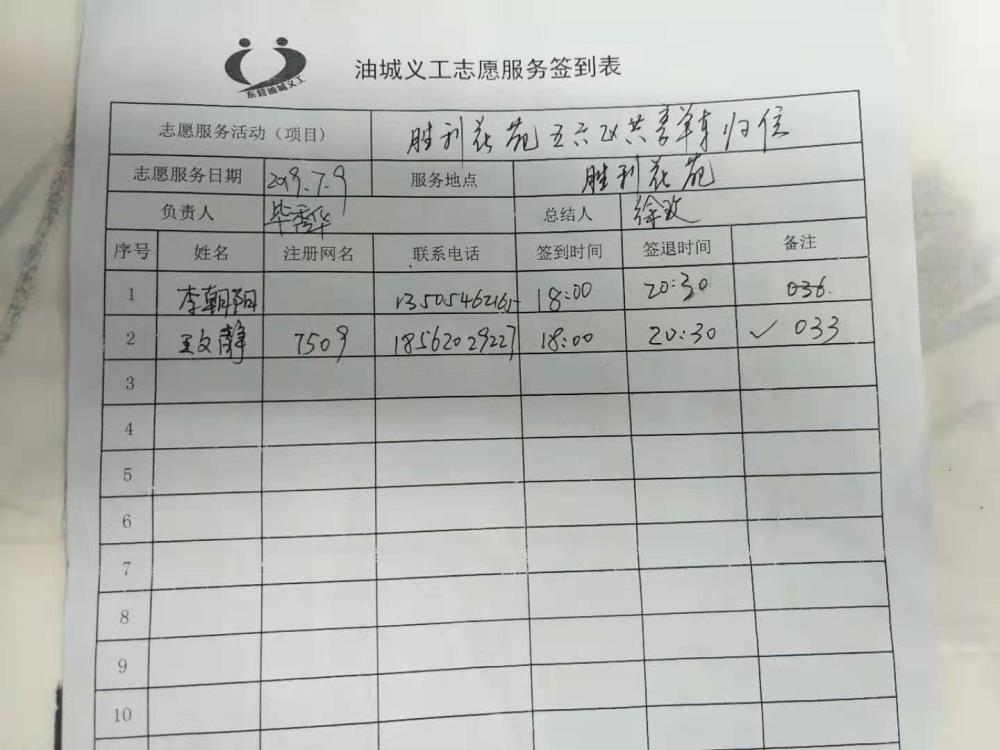 东营油城义工
油城义工志愿服务签到表
志愿服务活动（项目） 胜利花苑五六区共享单车归位
志愿服务日期 2019.7.9 服务地点 胜利花苑
负责人 毕秀华 总结人 徐政
序号 姓名 注册网名 联系电话 签到时间 签退时间 备注
1 李朝阳 13505462165 18:00 20:30 036.
2 王文静 7509 18562029227 18:00 20:30 ✓ 033
3
4
5
6
7
8
9
10